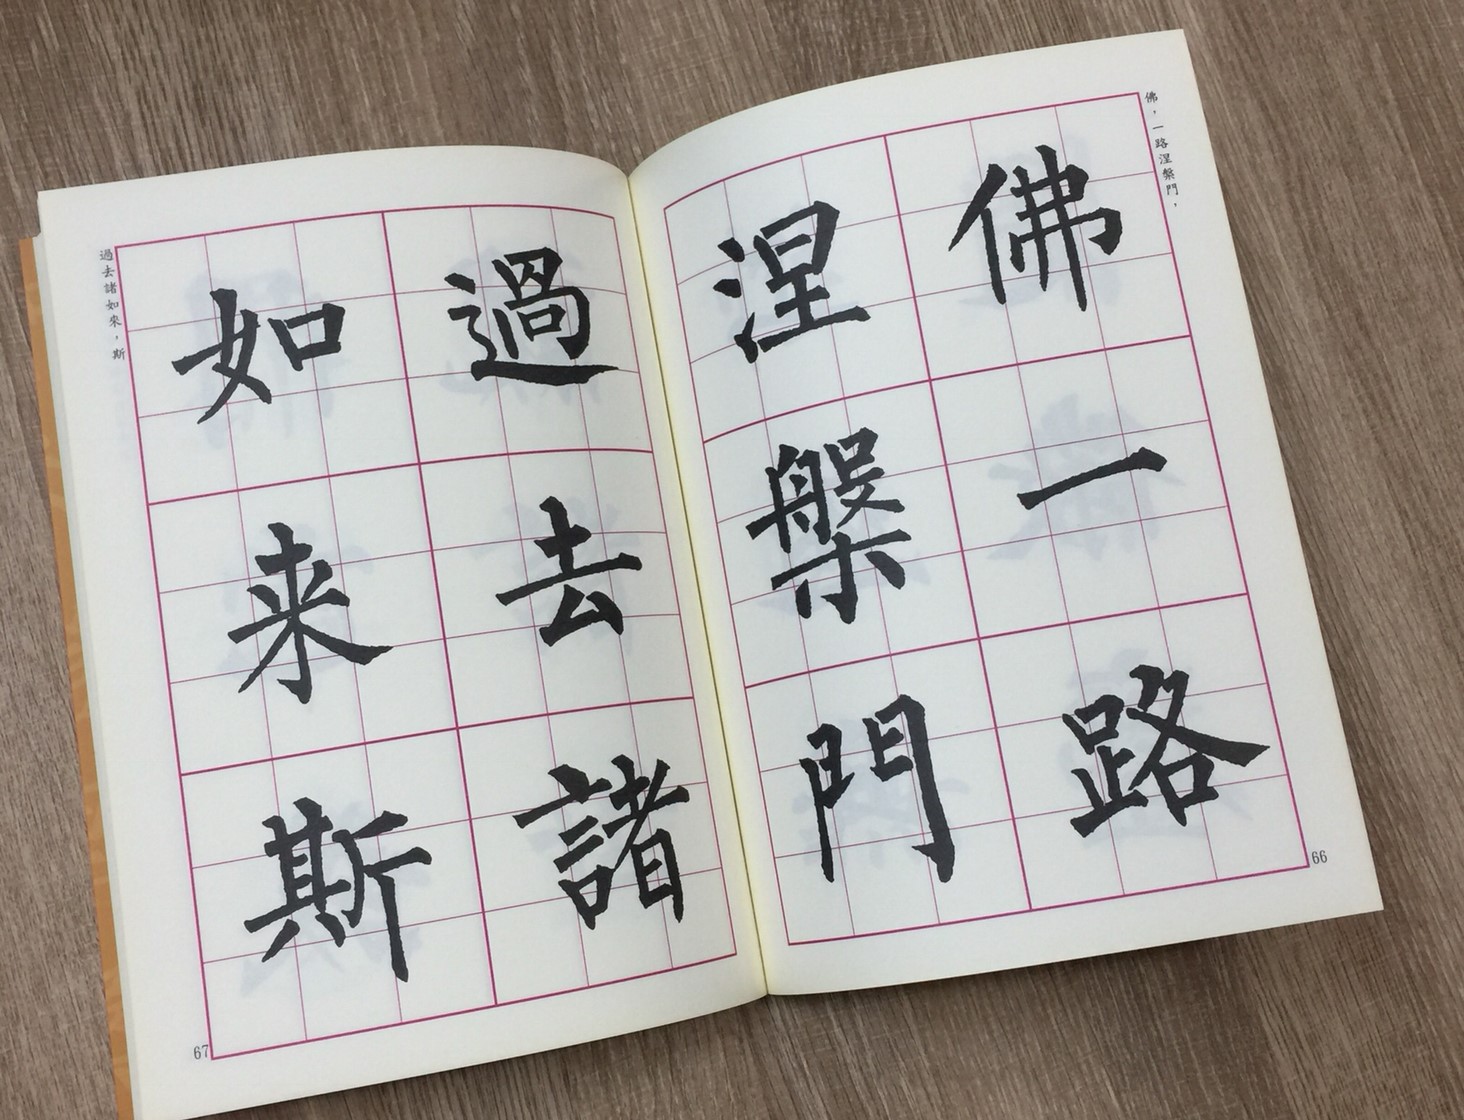 佛，一路涅槃門，
佛一路
涅槃門
66
過去諸
如来斯
過去諸如來，斯
67